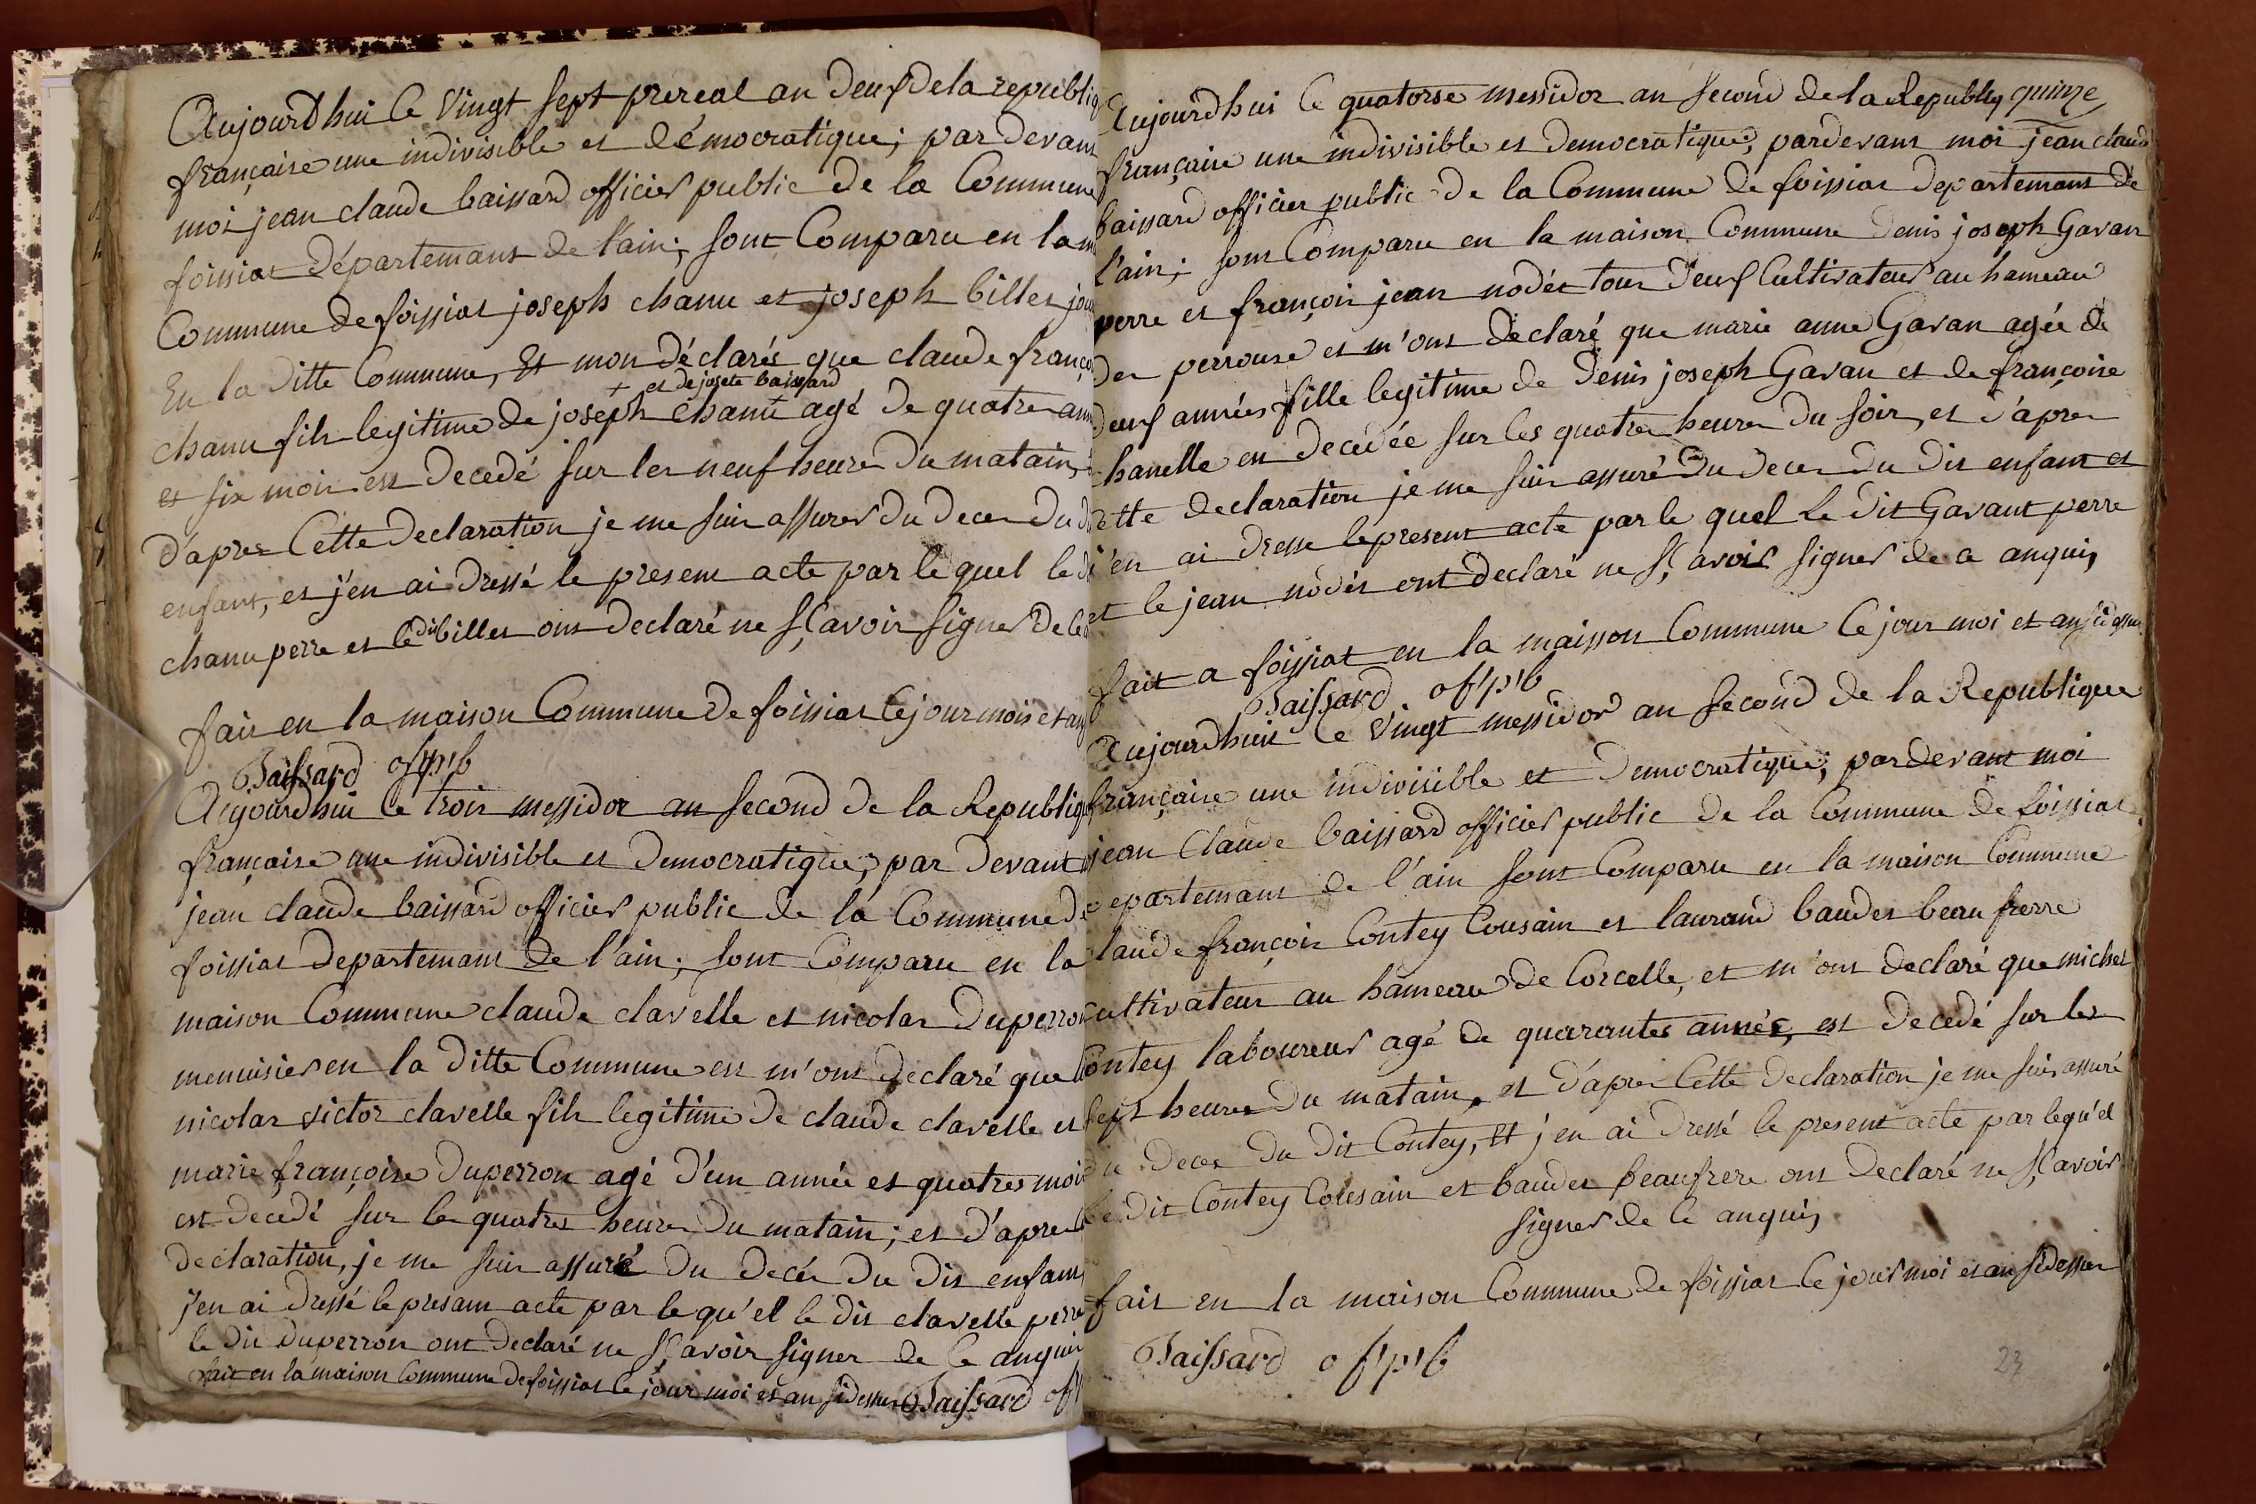 Aujourdhui le Vingt sept prereal an deuf de la republiq
française une indivisible et démocratique; par devant
moi jean claude baissard officier public de la Commune
foissiat départemant de l'ain; sont Comparu en la m
Commune de foissiat joseph chanu et joseph billet jou
En la ditte Commune, Et mon déclarés que claude franço
+ et de josete baissard
chanu fils legitime de joseph chanu agé de quatre ann
et six mois est decedé sur les neuf heure du matain,
d'apres Cette declaration je me suis assurer du deces du d
enfant, et j'en ai dressé le present acte par le quel le di
chanu perre et le dit billet ont declaré ne sçavoir signer de ce
fait en la maison Commune de foissiat le jour mois et an
Baissard of'p'b
Aujourdhui le trois messidor an second de la Republiq
française une indivisible et democratique; par devant
jean claude baissard officier public de la Commune de
foissiat departemant de l'ain; sont Comparu en la
maison Commune claude clavelle et nicolas duperron
menuisier en la ditte Commune et m'ont declaré que
nicolas victor clavelle fils legitime de claude clavelle et
marie françoise duperron agé d'un année et quatres mois
est decedé sur le quatres heure du matain; et d'apres
declaration, je me suis assuré du decés du dit enfant
j'en ai dressé le presant acte par le qu'el le dit clavelle perre
le dit duperron ont declaré ne sçavoir signer de ce anquis
fait en la maison Commune de foissiat le jour moi et an sidessus Baissard of'
quinze
Aujourdhui le quatorse messidor an second de la Republq
française une indivisible et democratique, pardevant moi jean claud
baissard officier public de la Commune de foissiat departemant de
l'ain; sont Comparu en la maison Commune denis joseph Gavan
perre et françois jean nodét tout deuf Cultivateur au hameau
des perrouse et m'ont declaré que marie anne Gavan agée de
deuf années fille legitime de denis joseph Gavan et de françoise
hanelle en decedée sur les quatres heure du soir, et d'apres
ette declaration je me suis assuré du deces du dit enfant et
j'en ai dresse le present acte par le quel Le dit Gavant perre
et le jean nodét ont declaré ne sçavoir signer de a anquis
fait a foissiat en la maisson Commune le jour moi et an sidessu
Baissard of'p'b
Aujourdhui le Vingt messidor an second de la Republique
française une indivisible et democratique; pardevant moi
jean Claude baissard officier public de la Commune de foissiat
departemant de l'ain sont Comparu en la maison Commune
laude françois Contey Cousain et laurand baudet beau frerre
cultivateur au hameau de Corcelle, et m'ont declaré que michel
Contey laboureur agé de quarantes année, est decedé sur les
sept heures du matain, et d'apres Cette declaration je me suis assuré
du deces du dit Contey, Et j'en ai dressé le present acte par lequ'el
le dit Contey Cousain et baudet beaufrere ont declaré ne sçavoir
signer de ce anquis
fait en la maison Commune de foissiat le jour moi et an sidessu
Baissard of'p'b
23